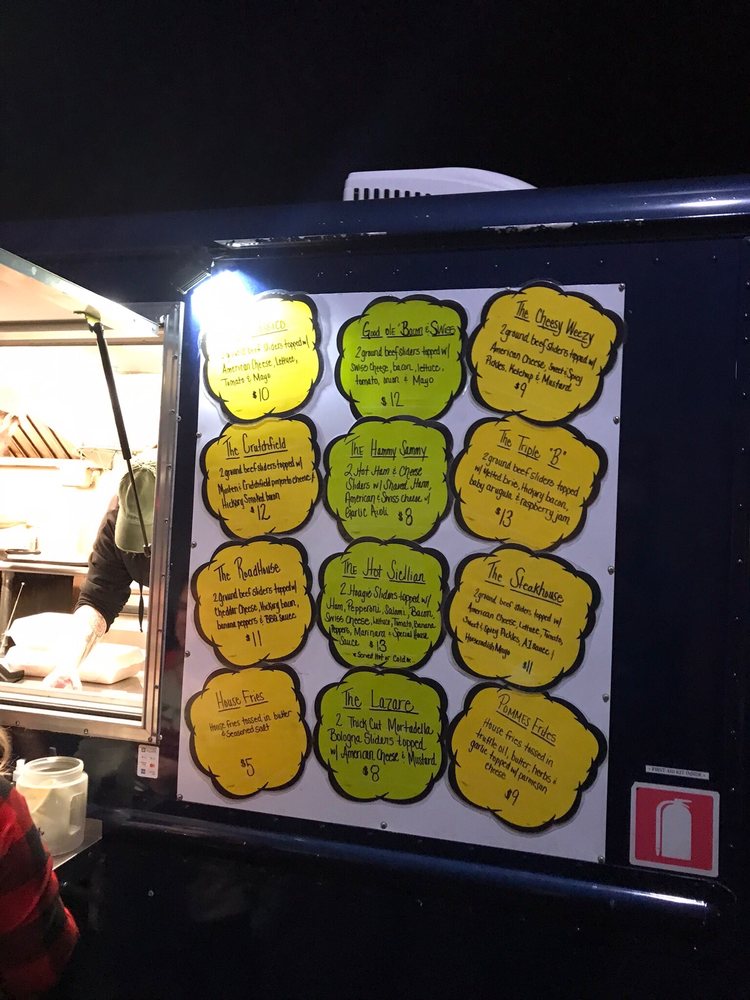 2 ground beef sliders topped w/
American Cheese, Lettuce,
Tomato & Mayo
$10
Good Ole Bacon & Swiss
2 ground beef sliders topped w/
Swiss Cheese, bacon, lettuce,
tomato, onion & Mayo
$12
The Cheesy Weezy
2 ground beef sliders topped w/
American Cheese, Sweet & Spicy
Pickles, Ketchup & Mustard
$9
The Crutchfield
2 ground beef sliders topped w/
Molten & Crutchfield pimento cheese &
Hickory Smoked bacon
$12
The Hammy Sammy
2 Hot Ham & Cheese
Sliders w/ Shaved Ham,
American & Swiss cheese w/
Garlic Aioli $8
The Triple "B"
2 ground beef sliders topped
w/ Melted brie, Hickory bacon,
baby arugula & raspberry jam
$13
The RoadHouse
2 ground beef sliders topped w/
Cheddar Cheese, Hickory bacon,
banana peppers & BBQ Sauce
$11
The Hot Sicilian
2 Hoagie Sliders topped w/
Ham, Pepperoni, Salami, Bacon,
Swiss Cheese, Lettuce, Tomato, Banana
Peppers, Marinara & Special House
Sauce $13
Served Hot or Cold
The Steakhouse
2 ground beef sliders topped w/
American Cheese, Lettuce, Tomato,
Sweet & Spicy Pickles, A.1 Sauce &
Horseradish Mayo
$11
House Fries
House fries tossed in butter
& Seasoned Salt
$5
The Lazare
2 Thick Cut Mortadella
Bologna Sliders topped
w/ American Cheese & Mustard
$8
Pommes Frites
House fries tossed in
truffle oil, butter, herbs &
garlic topped w/ parmesan
cheese
$9
FIRST AID KIT INSIDE